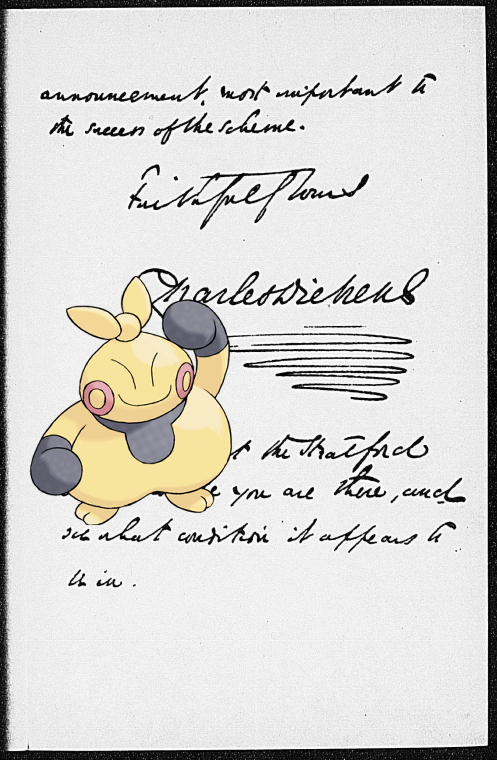 announcement, most important to
the success of the scheme.
Faithfully Yours
Charles Dickens
the Stratford
you are there, and
what condition it appears to
be in.